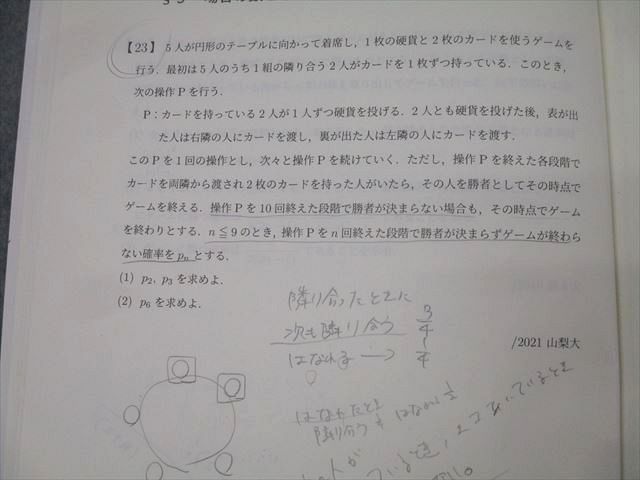 【23】 5人が円形のテーブルに向かって着席し，1枚の硬貨と2枚のカードを使うゲームを
行う．最初は5人のうち1組の隣り合う2人がカードを1枚ずつ持っている．このとき，
次の操作Pを行う．
P：カードを持っている2人が1人ずつ硬貨を投げる．2人とも硬貨を投げた後，表が出
た人は右隣の人にカードを渡し，裏が出た人は左隣の人にカードを渡す．
このPを1回の操作とし，次々と操作Pを続けていく．ただし，操作Pを終えた各段階で
カードを両隣から渡され2枚のカードを持った人がいたら，その人を勝者としてその時点で
ゲームを終える．操作Pを10回終えた段階で勝者が決まらない場合も，その時点でゲーム
を終わりとする．n≦9のとき，操作Pをn回終えた段階で勝者が決まらずゲームが終わら
ない確率をpₙとする．
(1) p₂, p₃を求めよ．
(2) p₆を求めよ．
/2021 山梨大
隣り合ったときに
次も隣り合う 3/4
はなれる → 1/4
はなれたとき
隣り合う